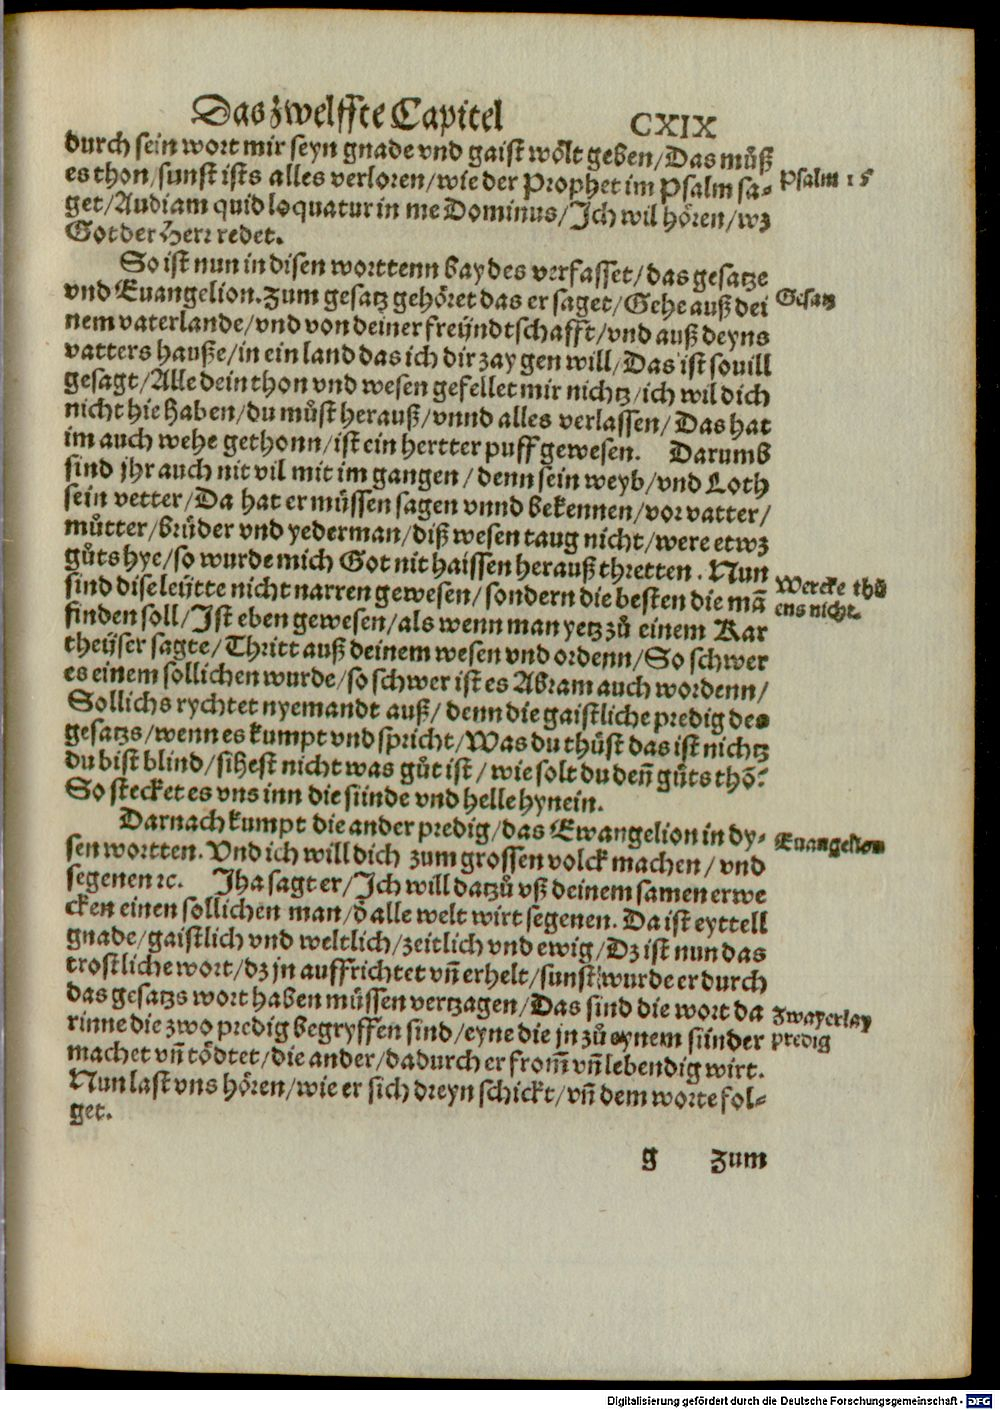 Das zwelffte Capitel CXIX
durch sein wort mir seyn gnade vnd gaist wölt geben/Das můß
es thon/sunst ists alles verloren/wie der Prophet im Psalm sa- Psalm 15
get/Audiam quid loquatur in me Dominus/Ich wil hören/wz
Got der Herr redet.
So ist nun in disen worttenn baydes verfasset/das gesatze
vnd Euangelion. Zum gesatz gehöret das er saget/Gehe auß dei Gesatz
nem vaterlande/vnd von deiner freÿndtschafft/vnd auß deyns
vatters hauße/in ein land das ich dir zaygen will/Das ist souill
gesagt/Alle dein thon vnd wesen gefellet mir nichtz/ich wil dich
nicht hie haben/du můst herauß/vnnd alles verlassen/Das hat
im auch wehe gethonn/ist ein hertter puff gewesen. Darumb
sind jhr auch nit vil mit im gangen/denn sein weyb/vnd Loth
sein vetter/Da hat er müssen sagen vnnd bekennen/vor vatter/
můtter/brüder vnd yederman/diß wesen taug nicht/were etwz
gůts hye/so wurde mich Got nit haissen herauß thretten. Nun
sind dise leÿtte nicht narren gewesen/sondern die besten die mā Wercke thů
finden soll/Ist eben gewesen/als wenn man yetz zů einem Kar ens nicht.
theÿser sagte/Thritt auß deinem wesen vnd ordenn/So schwer
es einem sollichen wurde/so schwer ist es Abram auch wordenn/
Sollichs rychtet nyemandt auß/denn die gaistliche predig des
gesatzs/wenn es kumpt vnd spricht/Was du thůst das ist nichtz
du bist blind/sihest nicht was gůt ist/wie solt du deñ gůts thō?
So stecket es vns inn die sünde vnd helle hynein.
Darnach kumpt die ander predig/das Ewangelion in dy- Euangelion
sen wortten. Vnd ich will dich zum grossen volck machen/vnd
segenen ꝛc. Jha sagt er/Ich will datzů vß deinem samen erwe
cken einen sollichen man/d̄ alle welt wirt segenen. Da ist eyttell
gnade/gaistlich vnd weltlich/zeitlich vnd ewig/Dz ist nun das
trostliche wort/dz jn auffrichtet vñ erhelt/sunst wurde er durch
das gesatzs wort haben müssen vertzagen/Das sind die wort da Zwayerlay
rinne die zwo predig begryffen sind/eyne die jn zů eynem sünder predig
machet vñ tödtet/die ander/dadurch er from̄ vñ lebendig wirt.
Nun last vns hören/wie er sich dreyn schickt/vñ dem worte fol-
get.
g Zum
Digitalisierung gefördert durch die Deutsche Forschungsgemeinschaft - DFG